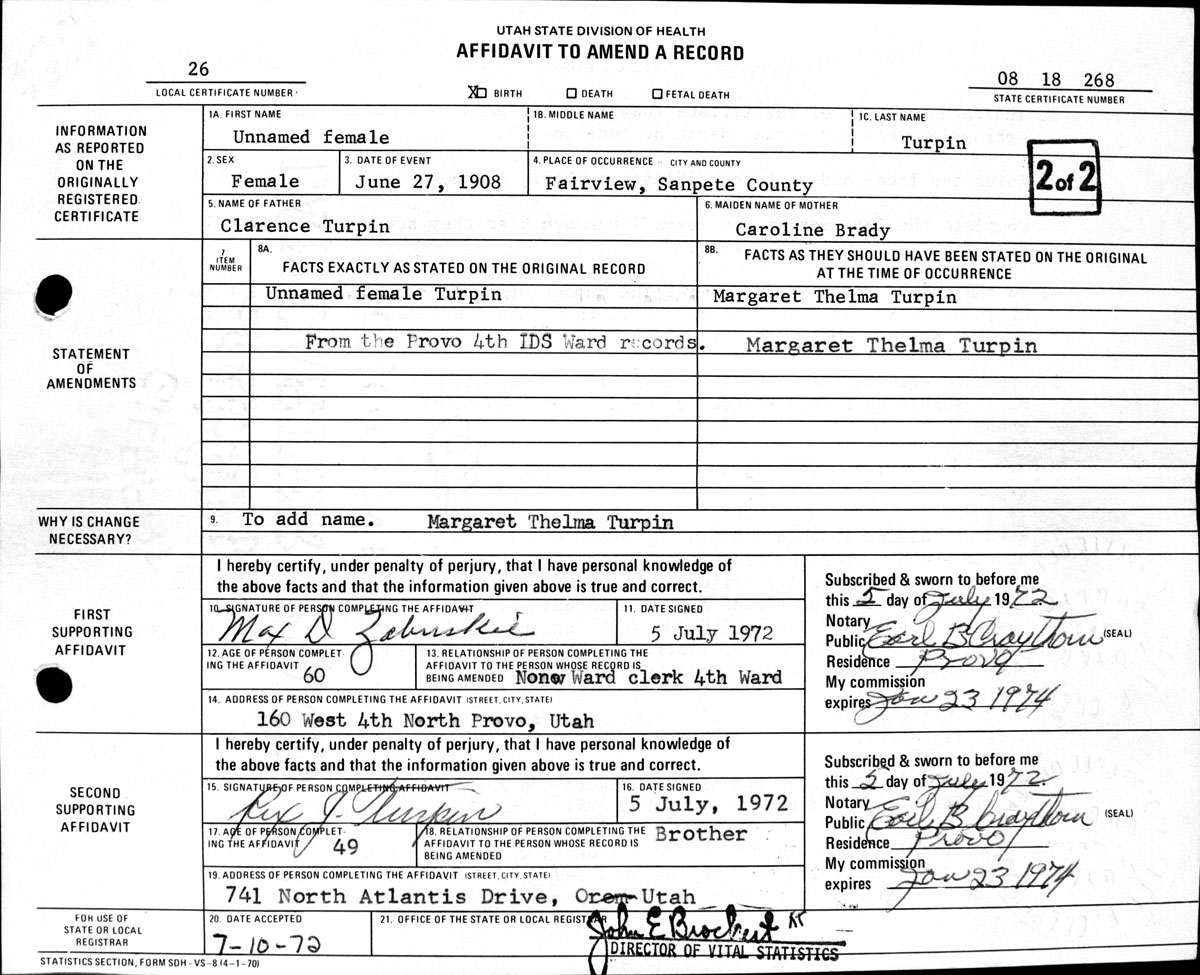 UTAH STATE DIVISION OF HEALTH
AFFIDAVIT TO AMEND A RECORD
26
LOCAL CERTIFICATE NUMBER
X BIRTH DEATH FETAL DEATH
08 18 268
STATE CERTIFICATE NUMBER
INFORMATION AS REPORTED ON THE ORIGINALLY REGISTERED CERTIFICATE
1A. FIRST NAME
Unnamed female
1B. MIDDLE NAME
1C. LAST NAME
Turpin
2 of 2
2. SEX
Female
3. DATE OF EVENT
June 27, 1908
4. PLACE OF OCCURRENCE - CITY AND COUNTY
Fairview, Sanpete County
5. NAME OF FATHER
Clarence Turpin
6. MAIDEN NAME OF MOTHER
Caroline Brady
STATEMENT OF AMENDMENTS
7 ITEM NUMBER
8A. FACTS EXACTLY AS STATED ON THE ORIGINAL RECORD
8B. FACTS AS THEY SHOULD HAVE BEEN STATED ON THE ORIGINAL
AT THE TIME OF OCCURRENCE
Unnamed female Turpin
Margaret Thelma Turpin
From the Provo 4th IDS Ward records.
Margaret Thelma Turpin
WHY IS CHANGE NECESSARY?
9. To add name. Margaret Thelma Turpin
FIRST SUPPORTING AFFIDAVIT
I hereby certify, under penalty of perjury, that I have personal knowledge of
the above facts and that the information given above is true and correct.
10. SIGNATURE OF PERSON COMPLETING THE AFFIDAVIT
Max D
11. DATE SIGNED
5 July 1972
12. AGE OF PERSON COMPLETING THE AFFIDAVIT
60
13. RELATIONSHIP OF PERSON COMPLETING THE
AFFIDAVIT TO THE PERSON WHOSE RECORD IS
BEING AMENDED None, Ward clerk 4th Ward
14. ADDRESS OF PERSON COMPLETING THE AFFIDAVIT (STREET, CITY, STATE)
160 West 4th North Provo, Utah
Subscribed & sworn to before me
this 5 day of July 1972
Notary
Public Earl B (SEAL)
Residence Provo
My commission
expires Jan 23 1974
SECOND SUPPORTING AFFIDAVIT
I hereby certify, under penalty of perjury, that I have personal knowledge of
the above facts and that the information given above is true and correct.
15. SIGNATURE OF PERSON COMPLETING AFFIDAVIT
Rex J. Turpin
16. DATE SIGNED
5 July, 1972
17. AGE OF PERSON COMPLETING THE AFFIDAVIT
49
18. RELATIONSHIP OF PERSON COMPLETING THE
AFFIDAVIT TO THE PERSON WHOSE RECORD IS
BEING AMENDED
Brother
19. ADDRESS OF PERSON COMPLETING THE AFFIDAVIT (STREET, CITY, STATE)
741 North Atlantis Drive, Orem Utah
Subscribed & sworn to before me
this 5 day of July 1972
Notary
Public Earl B (SEAL)
Residence Provo
My commission
expires Jan 23 1974
FOR USE OF STATE OR LOCAL REGISTRAR
20. DATE ACCEPTED
7-10-72
21. OFFICE OF THE STATE OR LOCAL REGISTRAR
John E Brockert
DIRECTOR OF VITAL STATISTICS
STATISTICS SECTION, FORM SDH-VS-8 (4-1-70)